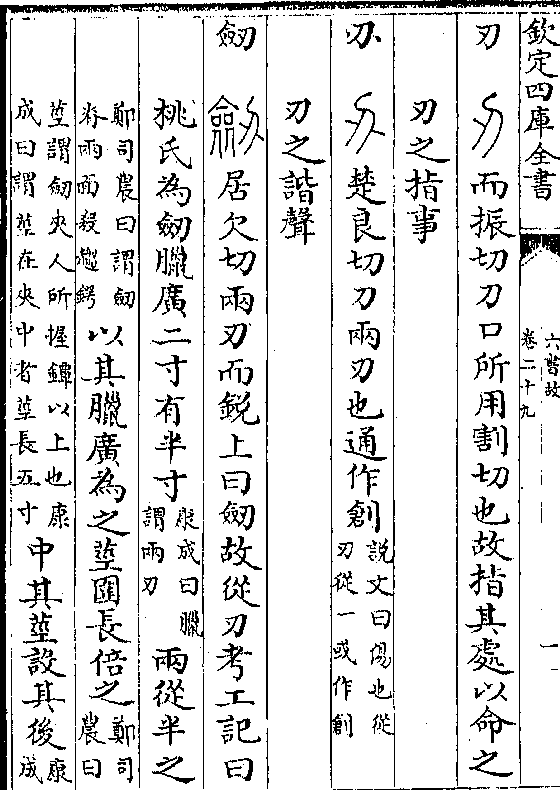 欽定四庫全書
六書故
卷二十九
一
刃 而振切刀口所用割切也故指其處以命之
刃之指事
刅 楚良切刀兩刃也通作創說文曰傷也從刃從一或作創
刃之諧聲
劒 居欠切兩刃而鋭上曰劒故從刃考工記曰
桃氏為劒臘廣二寸有半寸康成曰臘謂兩刃兩從半之
鄭司農曰謂劒脊兩面殺趨鍔以其臘廣為之莖圍長倍之鄭司農曰
莖謂劒夾人所握鐔以上也康成曰謂莖在夾中者莖長五寸中其莖設其後康成